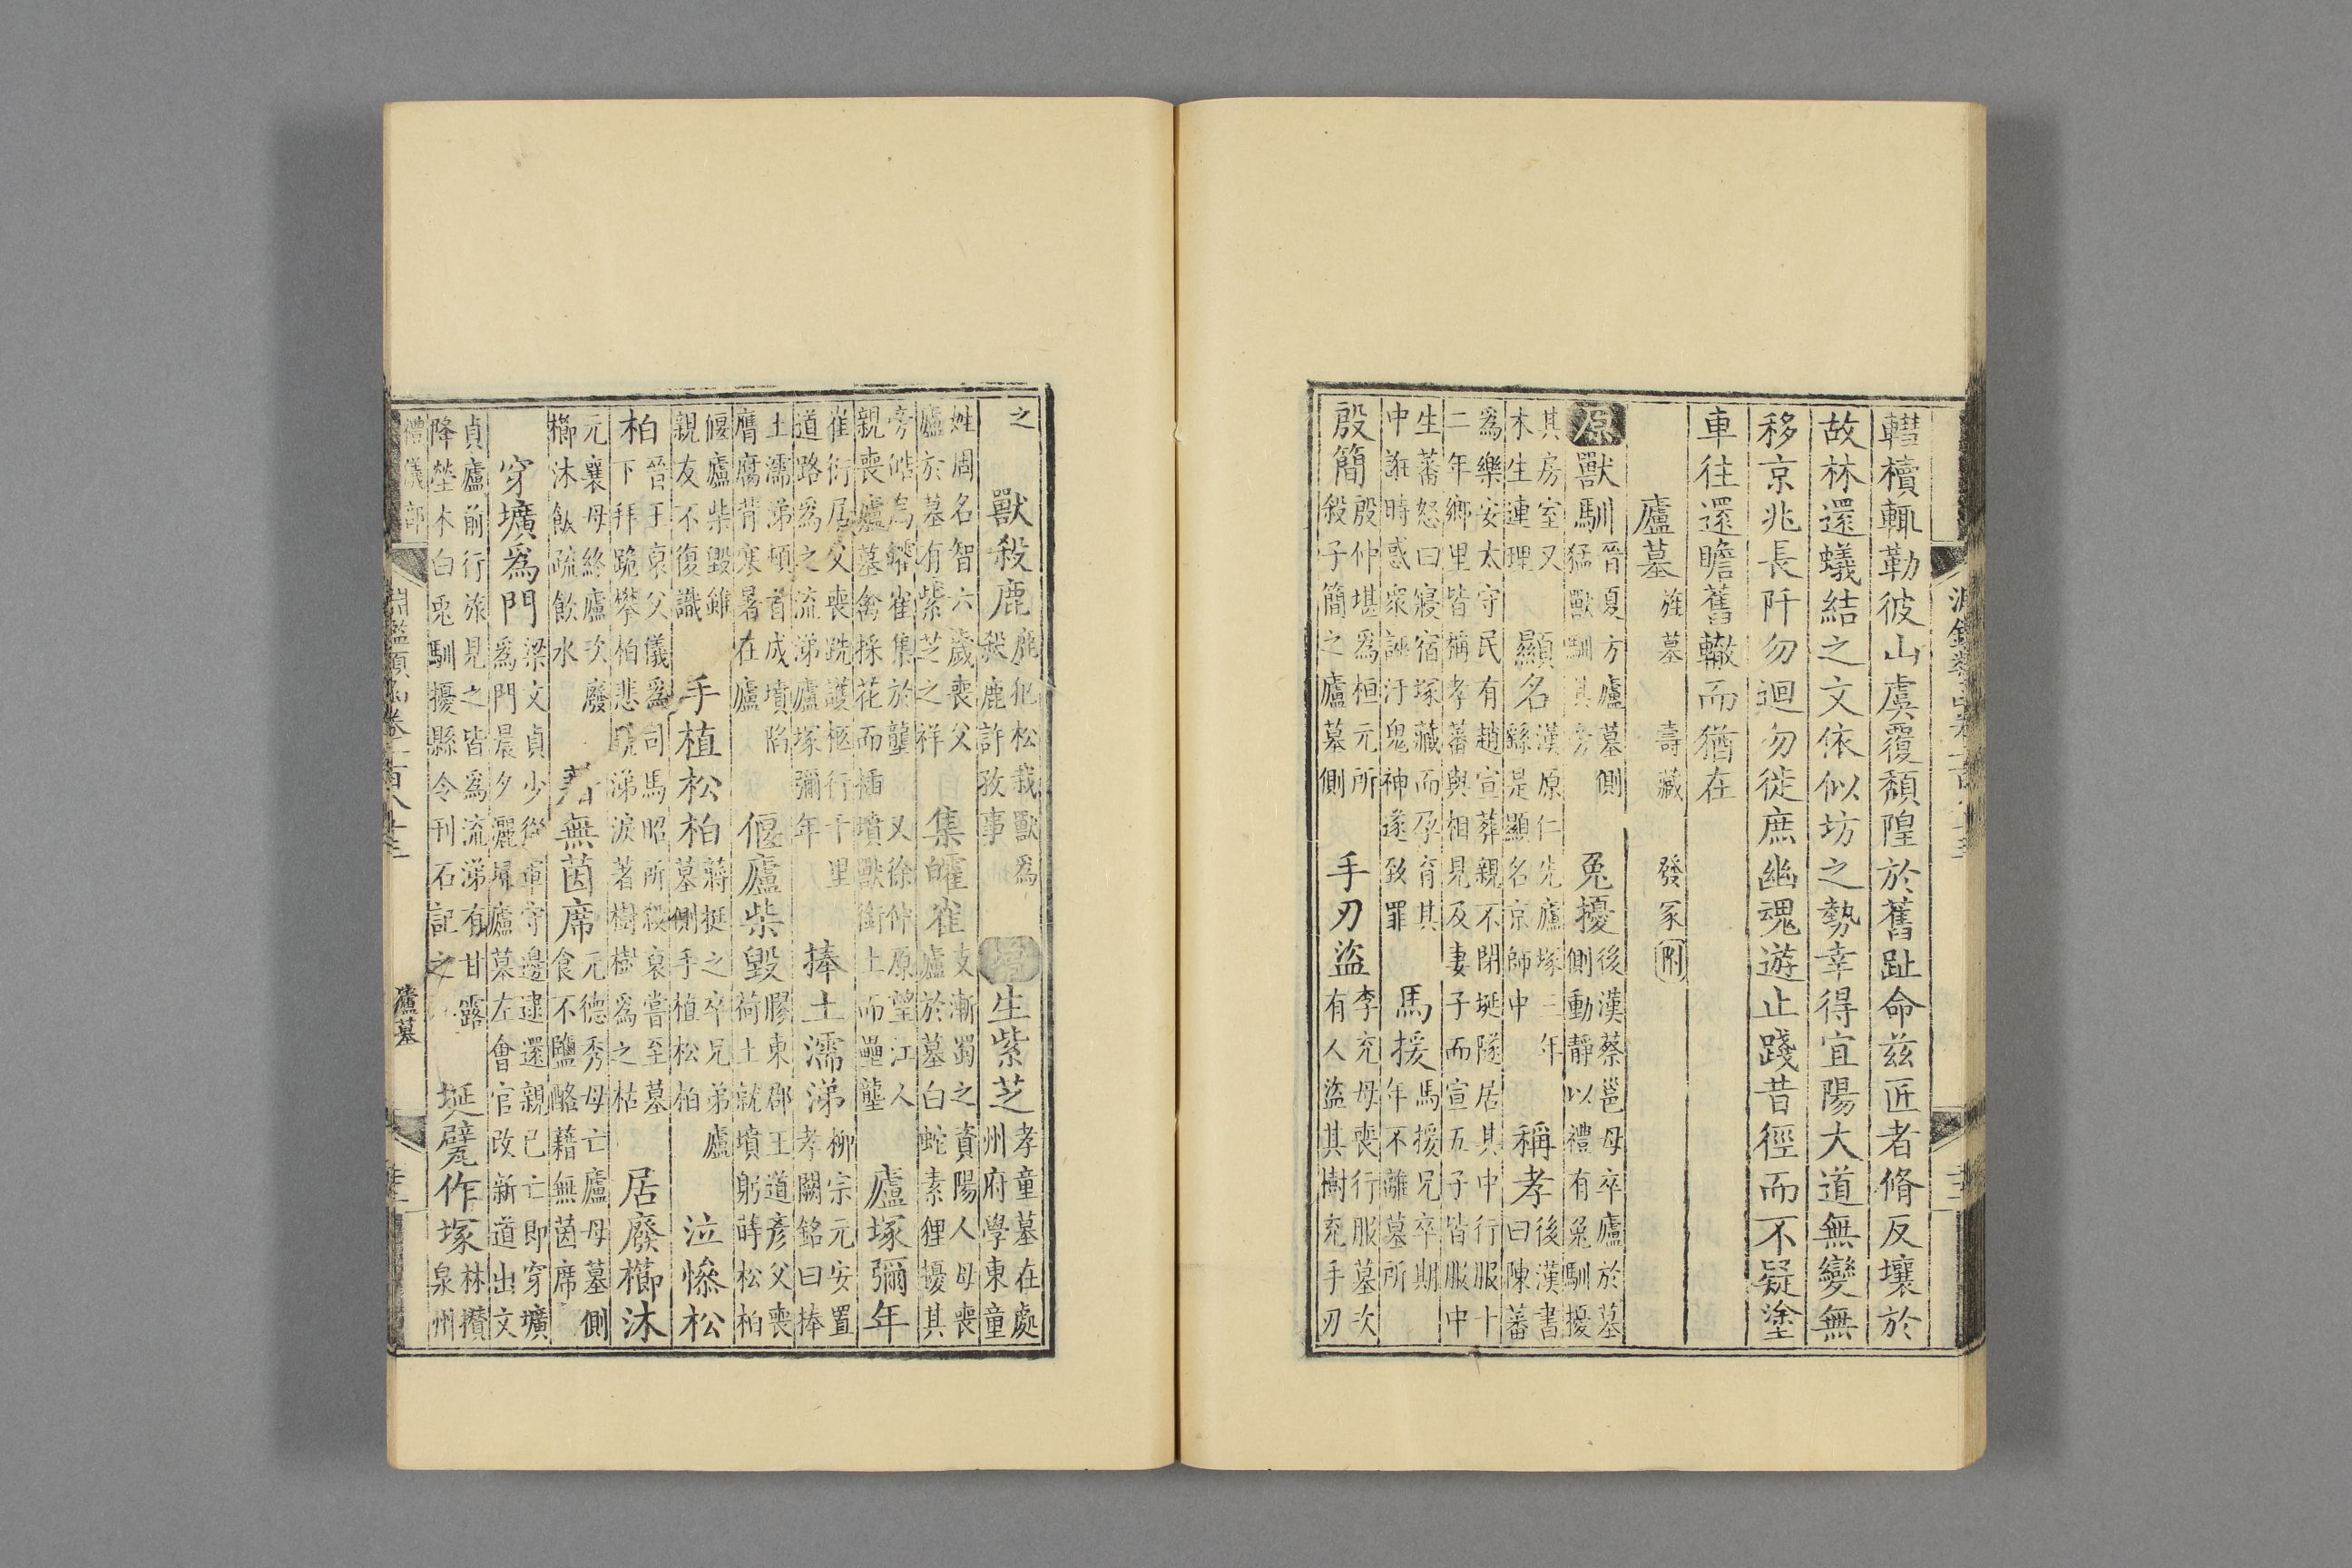 轊櫝輙勒彼山虞覆頹隍於舊趾命兹匠者脩反壤於
故林還蟻結之文依似坊之勢幸得宜陽大道無變無
移京兆長阡勿迴勿徙庶幽魂遊止踐昔徑而不疑塗
車往還瞻舊轍而猶在
廬墓 旌墓 壽藏 發冢附
原獸馴晉夏方廬墓側猛獸馴其旁 兔擾後漢蔡邕母卒廬於墓側動靜以禮有兔馴擾
其房室又木生連理 顯名漢原仁先廬塚三年繇是顯名京師中 稱孝後漢書曰陳蕃
爲樂安太守民有趙宣葬親不閉埏隧居其中行服十
二年鄉里皆稱孝蕃與相見及妻子而宣五子皆服中
生蕃怒曰寢宿塚藏而孕育其中誑時惑衆誣汙鬼神遂致罪 馬援馬援兄卒期年不離墓所
殷簡殷仲堪爲桓元所殺子簡之廬墓側 手刃盜李充母喪行服墓次有人盜其樹充手刃
之 獸殺鹿鹿犯松栽獸爲殺鹿許孜事 生紫芝孝童墓在處州府學東童
姓周名智六歲喪父廬於墓有紫芝之祥 集皬雀支漸蜀之資陽人母喪廬於墓白蛇素狸擾其
旁皓烏皬雀集於壟 又徐仲原望江人親喪廬墓禽採花而插墳獸銜土而壘壟 廬塚彌年
崔衍居父喪跣護柩行千里道路爲之流涕廬塚彌年 捧土濡涕柳宗元安置孝闕銘曰捧
土濡涕頓首成墳陷膺腐背寒暑在廬 偃廬柴毀膠東郡王道彥父喪荷土就墳躬蒔松柏
偃廬柴毀雖親友不復識 手植松柏蔣挺之卒兄弟廬墓側手植松柏 泣慘松
柏晉王裒父儀爲司馬昭所殺裒嘗至墓下拜跪攀柏悲號涕淚著樹樹爲之枯 居廢櫛沐
元襄母終廬次廢櫛沐飯疏飲水 藉無茵席元德秀母亡廬母墓側食不鹽酪藉無茵席
穿壙爲門梁文貞少從軍守邊逮還親已亡即穿壙爲門晨夕灑埽廬墓左會官改新道出文
貞廬前行旅見之皆爲流涕有甘露降塋木白兎馴擾縣令刊石記之 埏甓作塚林攢泉州
禮儀部
淵鑑類函卷一百八十三
廬墓